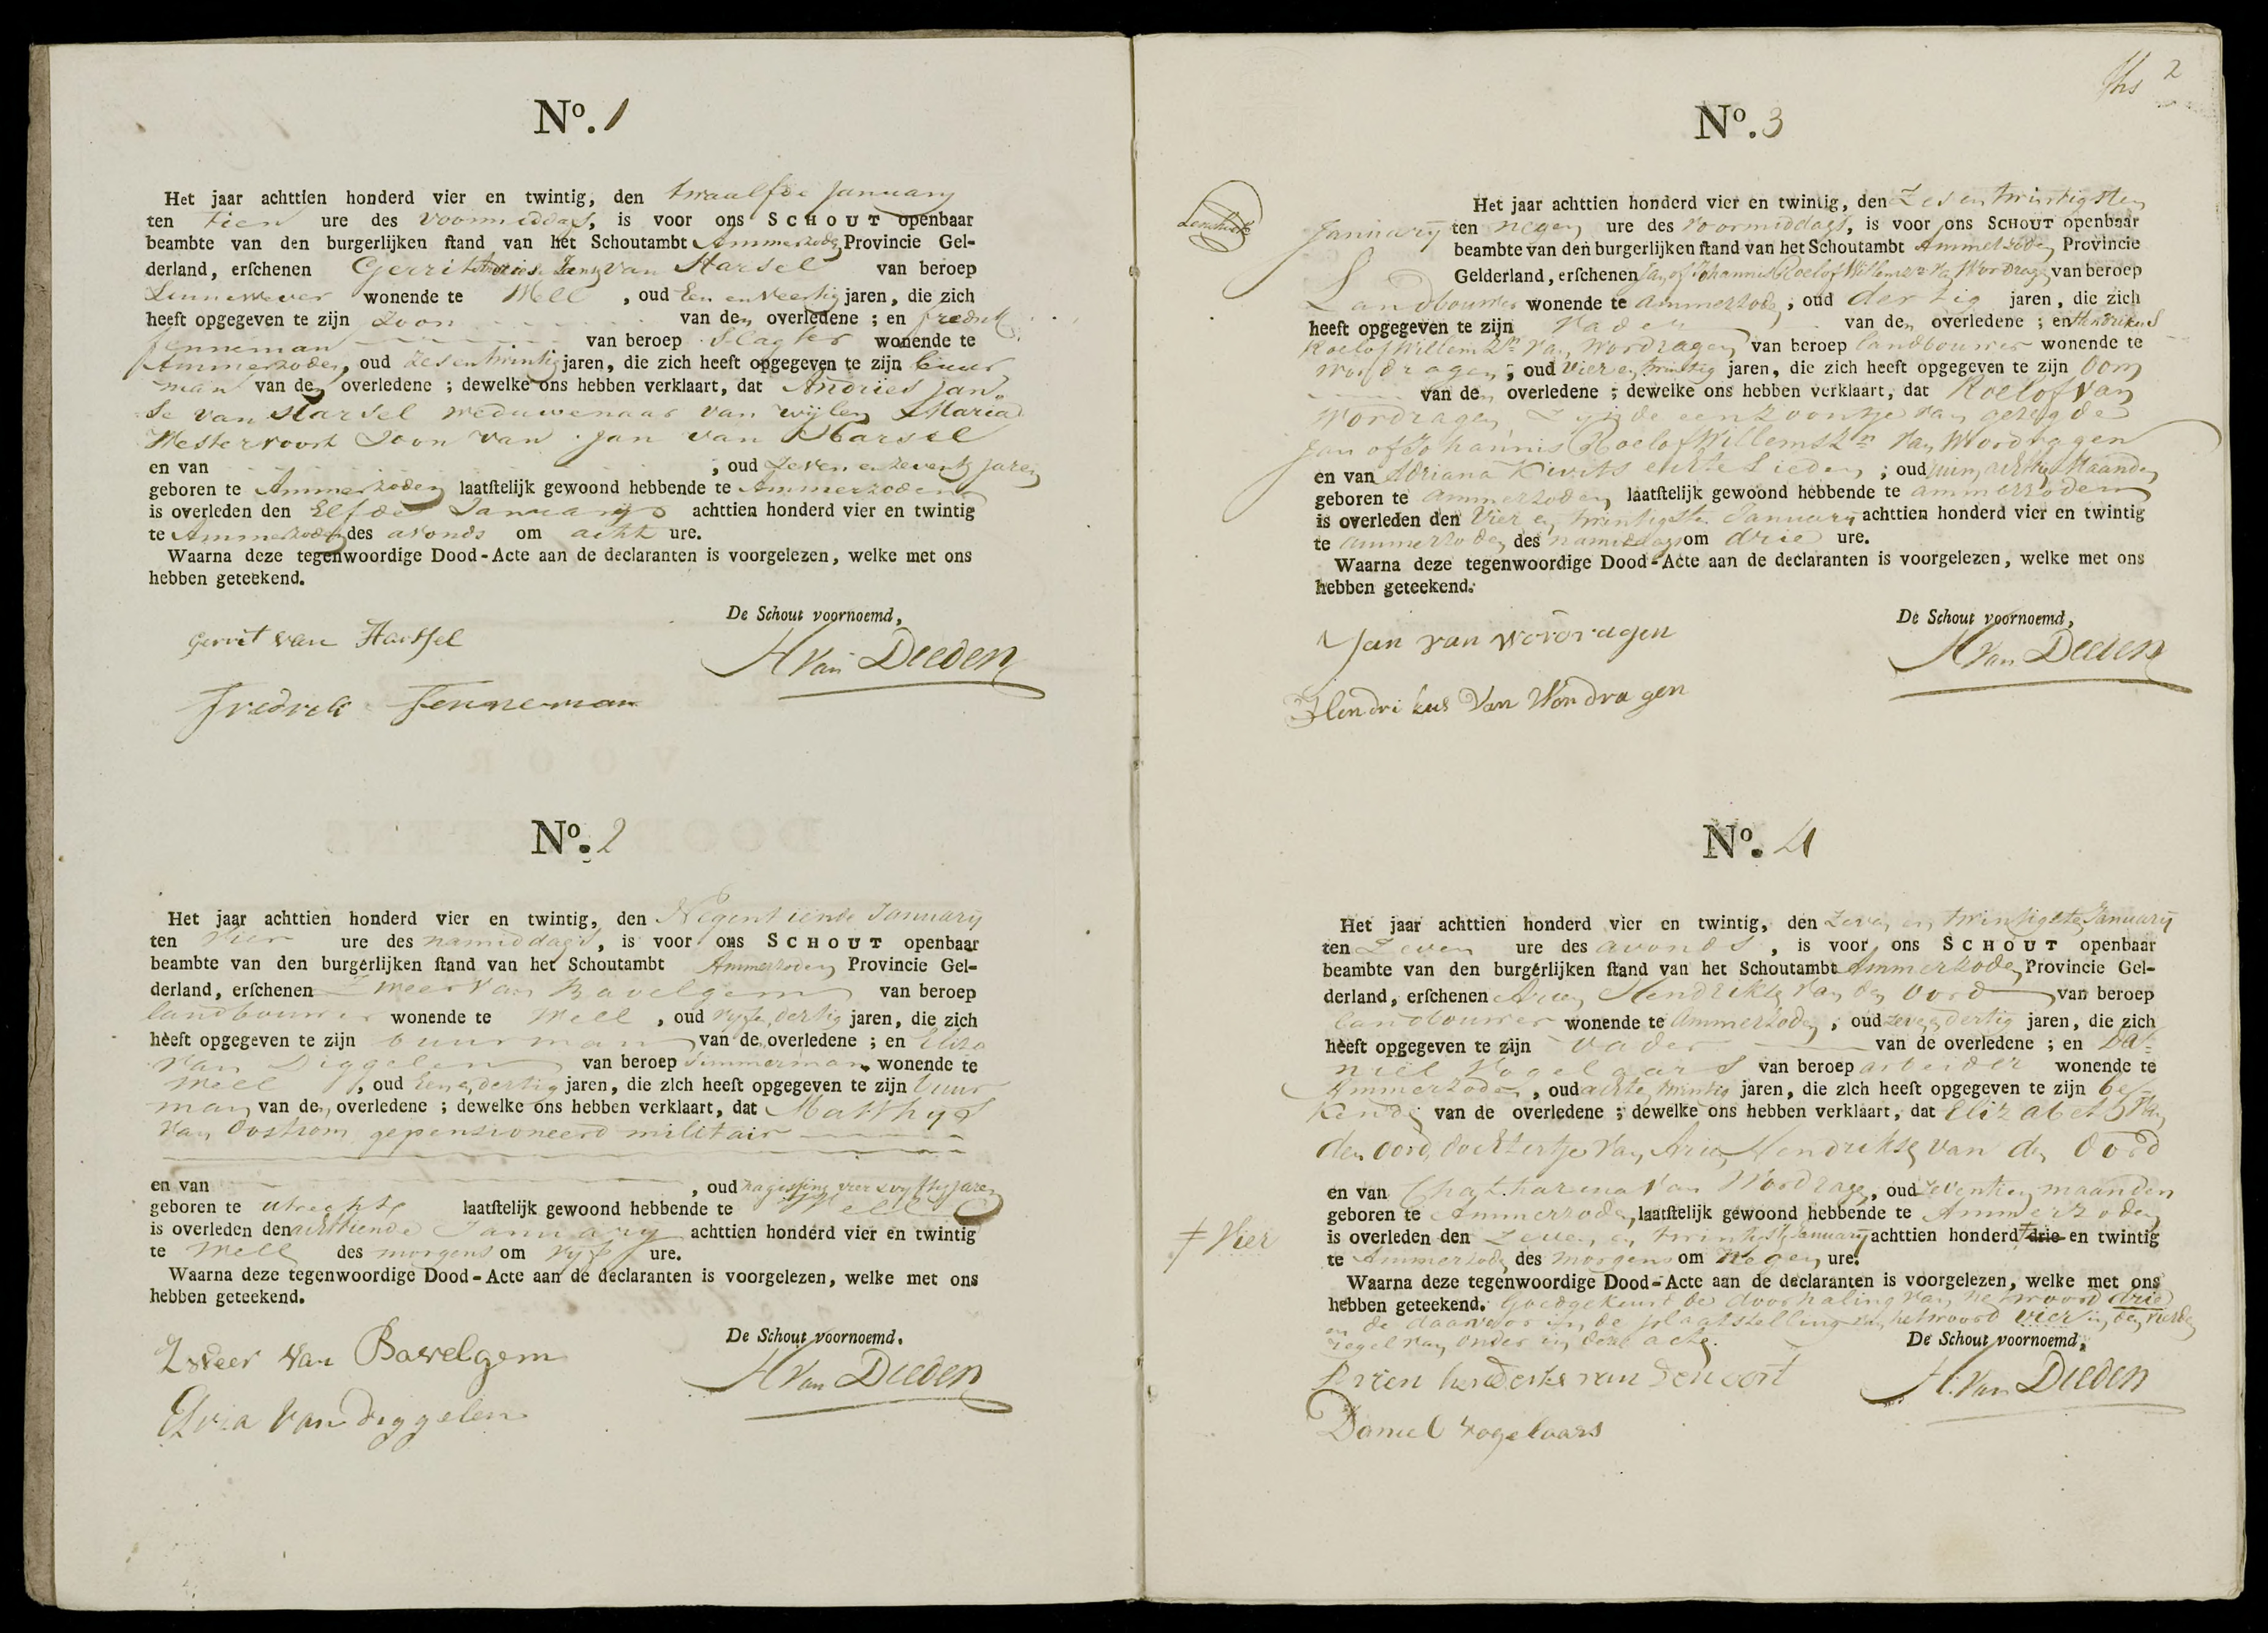 No. 1
Het jaar achttien honderd vier en twintig, den twaalfde January
ten tien ure des voormiddags, is voor ons SCHOUT openbaar
beambte van den burgerlijken stand van het Schoutambt Ammerzoden Provincie Gel-
derland, erschenen Gerrit Andries Jansz van Harsel van beroep
Linnewever wonende te Well, oud Een en veertig jaren, die zich
heeft opgegeven te zijn zoon van den overledene ; en fredrik
fenneman van beroep Slagter wonende te
Ammerzoden, oud zes en twintig jaren, die zich heeft opgegeven te zijn buur
man van den overledene ; dewelke ons hebben verklaart, dat Andries Jan
se van Harsel weduwenaar van wijlen Maria
Westervoort Zoon van Jan van Harsel
en van , oud Zeven en zeventig jaren
geboren te Ammerzoden laatstelijk gewoond hebbende te Ammerzoden
is overleden den Elfde January achttien honderd vier en twintig
te Ammerzoden des avonds om acht ure.
Waarna deze tegenwoordige Dood-Acte aan de declaranten is voorgelezen, welke met ons
hebben geteekend.
De Schout voornoemd,
gerrit van Harssel
H Van Dieden
Fredrik Fenneman
No. 2
Het jaar achttien honderd vier en twintig, den Negentiende January
ten vier ure des namiddags, is voor ons SCHOUT openbaar
beambte van den burgerlijken stand van het Schoutambt Ammerzoden Provincie Gel-
derland, erschenen Zweer van Bavelgem van beroep
landbouwer wonende te Well, oud vyf en dertig jaren, die zich
heeft opgegeven te zijn buurman van den overledene ; en Eliza
van Diggelen van beroep timmerman wonende te
Well, oud Een en dertig jaren, die zich heeft opgegeven te zijn buur
man van den overledene ; dewelke ons hebben verklaart, dat Matthys
van Oostrom gepensioneerd militair
en van , oud na gissing vier en vyftig jaren
geboren te utrecht laatstelijk gewoond hebbende te Well
is overleden den achttiende January achttien honderd vier en twintig
te Well des morgens om vyf ure.
Waarna deze tegenwoordige Dood-Acte aan de declaranten is voorgelezen, welke met ons
hebben geteekend.
De Schout voornoemd.
Zweer van Bavelgem
H Van Dieden
van Diggelen
2
No. 3
Het jaar achttien honderd vier en twintig, den Zes en twintigsten
January ten negen ure des voormiddags, is voor ons SCHOUT openbaar
beambte van den burgerlijken stand van het Schoutambt Ammerzoden Provincie
Gelderland, erschenen Jan of Johannis Roelof Willemszn van Wordragen van beroep
Landbouwer wonende te ammerzoden, oud dertig jaren, die zich
heeft opgegeven te zijn vader van den overledene ; en Hendrikus
Roelof Willemszn van Wordragen van beroep landbouwer wonende te
wordragen, oud vier en twintig jaren, die zich heeft opgegeven te zijn oom
van den overledene ; dewelke ons hebben verklaart, dat Roelof van
Wordragen Zynde een zoontje van gezegde
Jan of Johannis Roelof Willemszn van Wordraggen
en van Adriana Kivits echte Lieden ; oud ruim achttien Maanden
geboren te ammerzoden laatstelijk gewoond hebbende te ammerzoden
is overleden den vier en twintigste January achttien honderd vier en twintig
te ammerzoden des namiddags om drie ure.
Waarna deze tegenwoordige Dood-Acte aan de declaranten is voorgelezen, welke met ons
hebben geteekend.
De Schout voornoemd,
Jan van wordragen
H Van Dieden
Hendrikus Van Wordragen
No. 4
Het jaar achttien honderd vier en twintig, den Zeven en twintigste January
ten Zeven ure des avonds, is voor ons SCHOUT openbaar
beambte van den burgerlijken stand van het Schoutambt Ammerzoden Provincie Gel-
derland, erschenen Arien Hendrikse van den Oord van beroep
landbouwer wonende te Ammerzoden, oud zeven en dertig jaren, die zich
heeft opgegeven te zijn vader van de overledene ; en Da-
niel Vogelaars van beroep arbeider wonende te
Ammerzoden, oud acht en twintig jaren, die zich heeft opgegeven te zijn be-
kende van de overledene ; dewelke ons hebben verklaart, dat Elizabeth van
den Oord, dochtertje van Arien Hendrikse van den Oord
en van Chatharina van Wordragen, oud zeventien maanden
geboren te Ammerzoden, laatstelijk gewoond hebbende te Ammerzoden
is overleden den Zeven en twintigste January achttien honderd ǂ drie en twintig
ǂ Vier
te Ammerzoden des morgens om Negen ure.
Waarna deze tegenwoordige Dood-Acte aan de declaranten is voorgelezen, welke met ons
hebben geteekend. Goedgekeurt de doorhaling van het woord drie
en de daarvoor in de plaatstelling van het woord vier in den vierde
regel van onder in deze acte.
De Schout voornoemd,
Arien henderkse van den oort
H. Van Dieden
Daniel Vogelaars